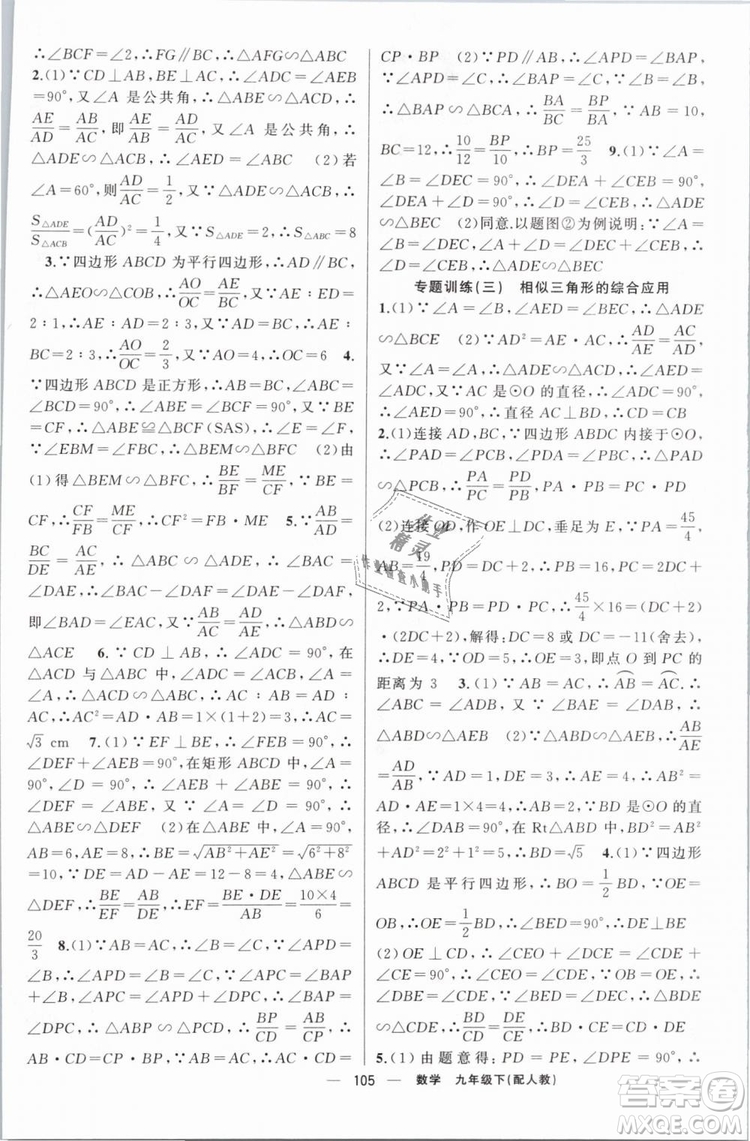 ∴∠BCF=∠2,∴FG∥BC,∴△AFG∽△ABC
2.(1)∵CD⊥AB,BE⊥AC,∴∠ADC=∠AEB
=90°,又∠A 是公共角,∴△ABE∽△ACD,∴
AE/AD=AB/AC,即AE/AB=AD/AC,又∵∠A 是公共角,∴
△ADE∽△ACB,∴∠AED=∠ABC (2)若
∠A=60°,则AD/AC=1/2,又∵△ADE∽△ACB,∴
S△ADE/S△ACB=(AD/AC)²=1/4,又∵S△ADE=2,∴S△ACB=8
3.∵四边形 ABCD 为平行四边形,∴AO/OC=AE/BC,∵AE∶ED=
2∶1,∴AE∶AD=2∶3,∵AD=BC,∴AE∶
BC=2∶3,∴AO/OC=2/3,∵AO=4,∴OC=6 4.
∵四边形 ABCD 是正方形,∴AB=BC,∠ABC=
∠BCD=90°,∴∠ABE=∠BCF=90°,又∵BE
=CF,∴△ABE≌△BCF(SAS),∴∠E=∠F,
∵∠EBM=∠FBC,∴△EBM∽△FBC (2)由
(1)得△EBM∽△FBC,∴BE/BF=ME/CF,∵BE=
CF,∴CF/FB=ME/CF,∴CF²=FB·ME 5.∵AB/AD=
BC/DE=AC/AE,∴△ABC∽△ADE,∴∠BAC=
∠DAE,∴∠BAC-∠DAC=∠DAE-∠DAF,
即∠BAD=∠CAE,∵AB/AD=AC/AE,∴△ABD∽
△ACE 6.∵CD⊥AB,∴∠ADC=90°,在△
ACD 与△ABC 中,∠ADC=∠ACB=90°,∠A=
∠A,∴△ACD∽△ABC,∴AC∶AB=AD∶
AC,∴AC²=AD·AB=1×(1+2)=3,∴AC=
√3 cm 7.(1)∵EF⊥BE,∴∠FEB=90°,∴
∠DEF+∠AEB=90°,∵在矩形 ABCD 中,∠A
=90°,∠D=90°,∴∠ABE+∠AEB=90°,∴∠
DEF=∠ABE,又∵∠A=∠D=90°,∴
△ABE∽△DEF (2)在△ABE 中,∠A=90°,
AB=6,AE=8,∴BE=√(AB²+AE²)=√(6²+8²)
=10,又∵DE=AD-AE=12-8=4,△ABE∽
△DEF,∴BE/EF=AB/DE,∴EF=BE·DE/AB=10×4/6=
20/3 8.(1)∵AB=AC,∴∠B=∠C,∵∠APD=
∠B,∴∠APD=∠B=∠C,∵∠APC=∠BAP
+∠B,∠APC=∠APD+∠DPC,∴∠BAP=
∠DPC,∴△ABP∽△PCD,∴BP/CD=AB/CP,∴
AB·CD=CP·BP,∵AB=AC,∴AC·CD=
CP·BP (2)∵PD∥AB,∴∠APD=∠BAP,
∵∠APD=∠C,∴∠BAP=∠C,∵∠B=∠B,
∴△ABP∽△BCA,∴BA/BC=BP/BA,∵AB=10,
BC=12,∴10/12=BP/10,∴BP=25/3 9.(1)∵∠A=
∠B=∠DEC=90°,∴∠DEA+∠CEB=90°,∵
∠DEA+∠D=90°,∴∠D=∠CEB,∴△ADE
∽△BEC (2)同意.以题图②为例说明:∵∠A=
∠B=∠DEC,∴∠D=∠CEB,又∵∠A=∠B,
∴△ADE∽△BEC
专题训练(三) 相似三角形的综合应用
1.(1)∵∠A=∠BCE,∠ABC=∠BEC,∴
△ABD∽△BCE (2)∵△ABD∽△BCE,∴AD/BE=
AB/BC,又∵AB是⊙O 的直径,∴∠AED=90°,∴
∠AED=90°,∴直径 AC⊥BD,∴CD=CB
2.(1)连接 AD,BC,∵四边形 ABDC 内接于⊙O,
∴∠PAB=∠PCD,∠PBA=∠PDC,∴
△PAB∽△PCD,∴PA/PC=PB/PD,∴PA·PD=PC·PB
(2)连接 OD,作 OE⊥DC,垂足为 E,∵PA=45/4,
AB=19/4,∴PB=PA+AB=16,∵PC=DC+
2,又∵PA·PB=PC·PD,∴45/4×16=(DC+2)
·(2DC+2),解得:DC=8 或 DC=-11(舍去),
∴DE=4,∵OD=5,∴OE=3,即点 O 到 PC 的
距离为 3 3.(1)∵AB=AC,∴AB=AC,∴
∠ABC=∠ADB,又∠BAE=
∠DAB,∴△ABD∽△AEB,∴AB/AE=
AD/AB,∴AB²=AD·AE=
AD·AE=1×4=4,∴AB=2,∵BD是⊙O的直
径,∴∠DAB=90°,在Rt△ABD中,BD²=
AB²+AD²=2²+1²=5,∴BD=√5 4.(1)∵四边形
ABCD 是平行四边形,∴BO=1/2BD,∵OE=
OB,∴OE=1/2BD,∴∠BED=90°,∴BE⊥DE
(2)∵OE⊥CD,∴∠CEO+∠DCE=∠CDE+
∠DCE=90°,∴∠CEO=∠CDE,∵OE=OB,
∴∠DBE=∠CDE,∵∠BED=∠BED,∴△BDE
∽△DCE,∴BD/CD=DE/CE,∴BD·CE=CD·DE
5.(1)由题意得:AD=AE,∠DAE=60°,∴
105 数学 九年级下(配人教)
作业
精灵
作业检查小助手
答案圈
MXQE.COM